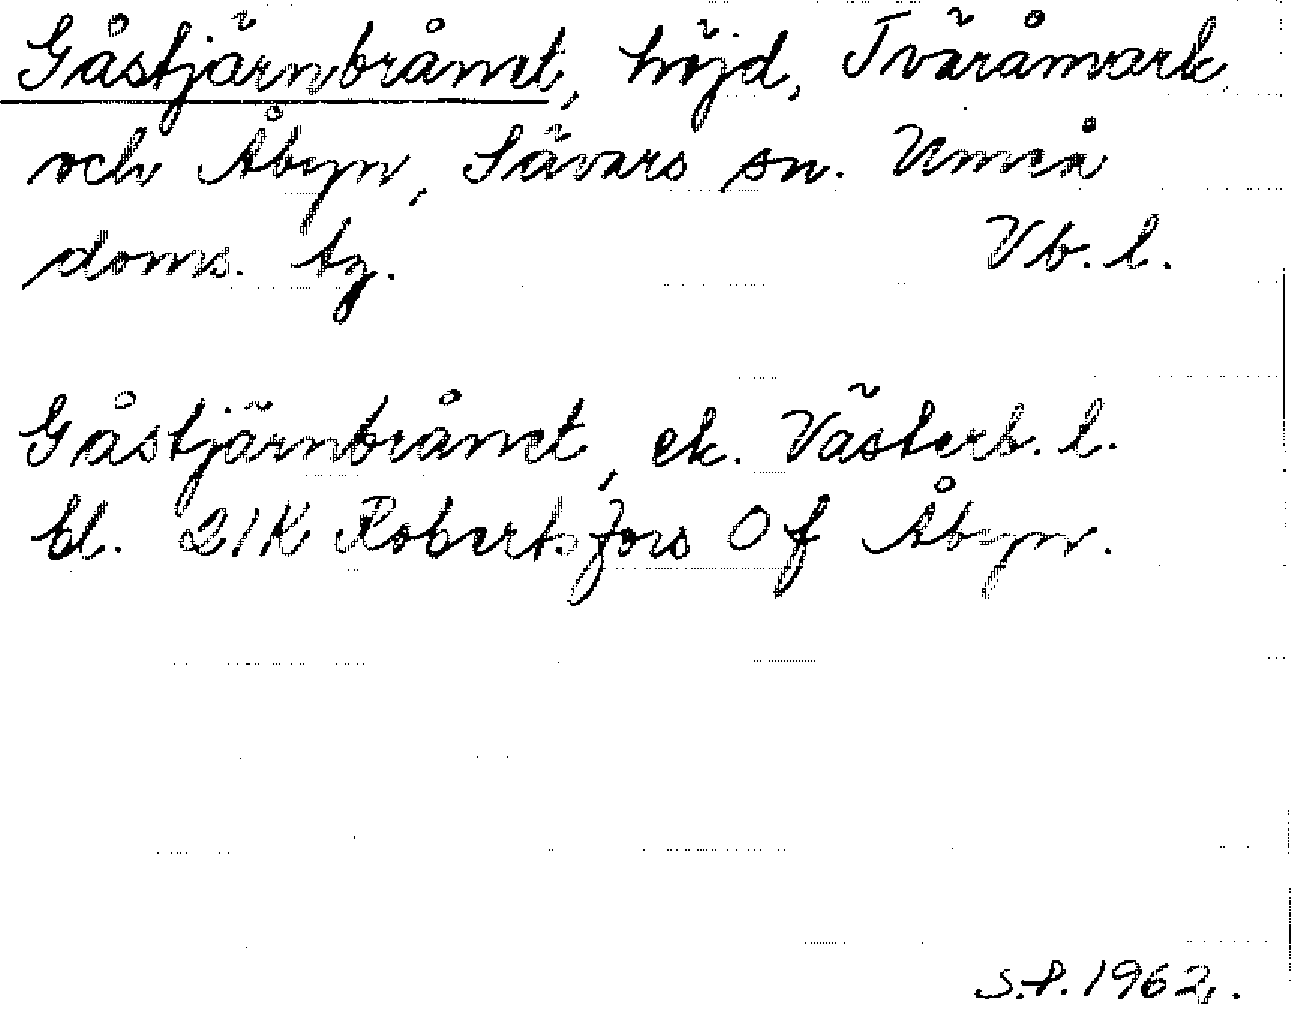 Gåstjärnbrånet, höjd, Tväråmark
och Åbyn, Sävars sn. Umeå
doms. tg. Vb. l.
Gåstjärnbrånet, ek. Västerb. l.
bl. 21K Robertsfors Of Åbyn.
S.P. 1962.